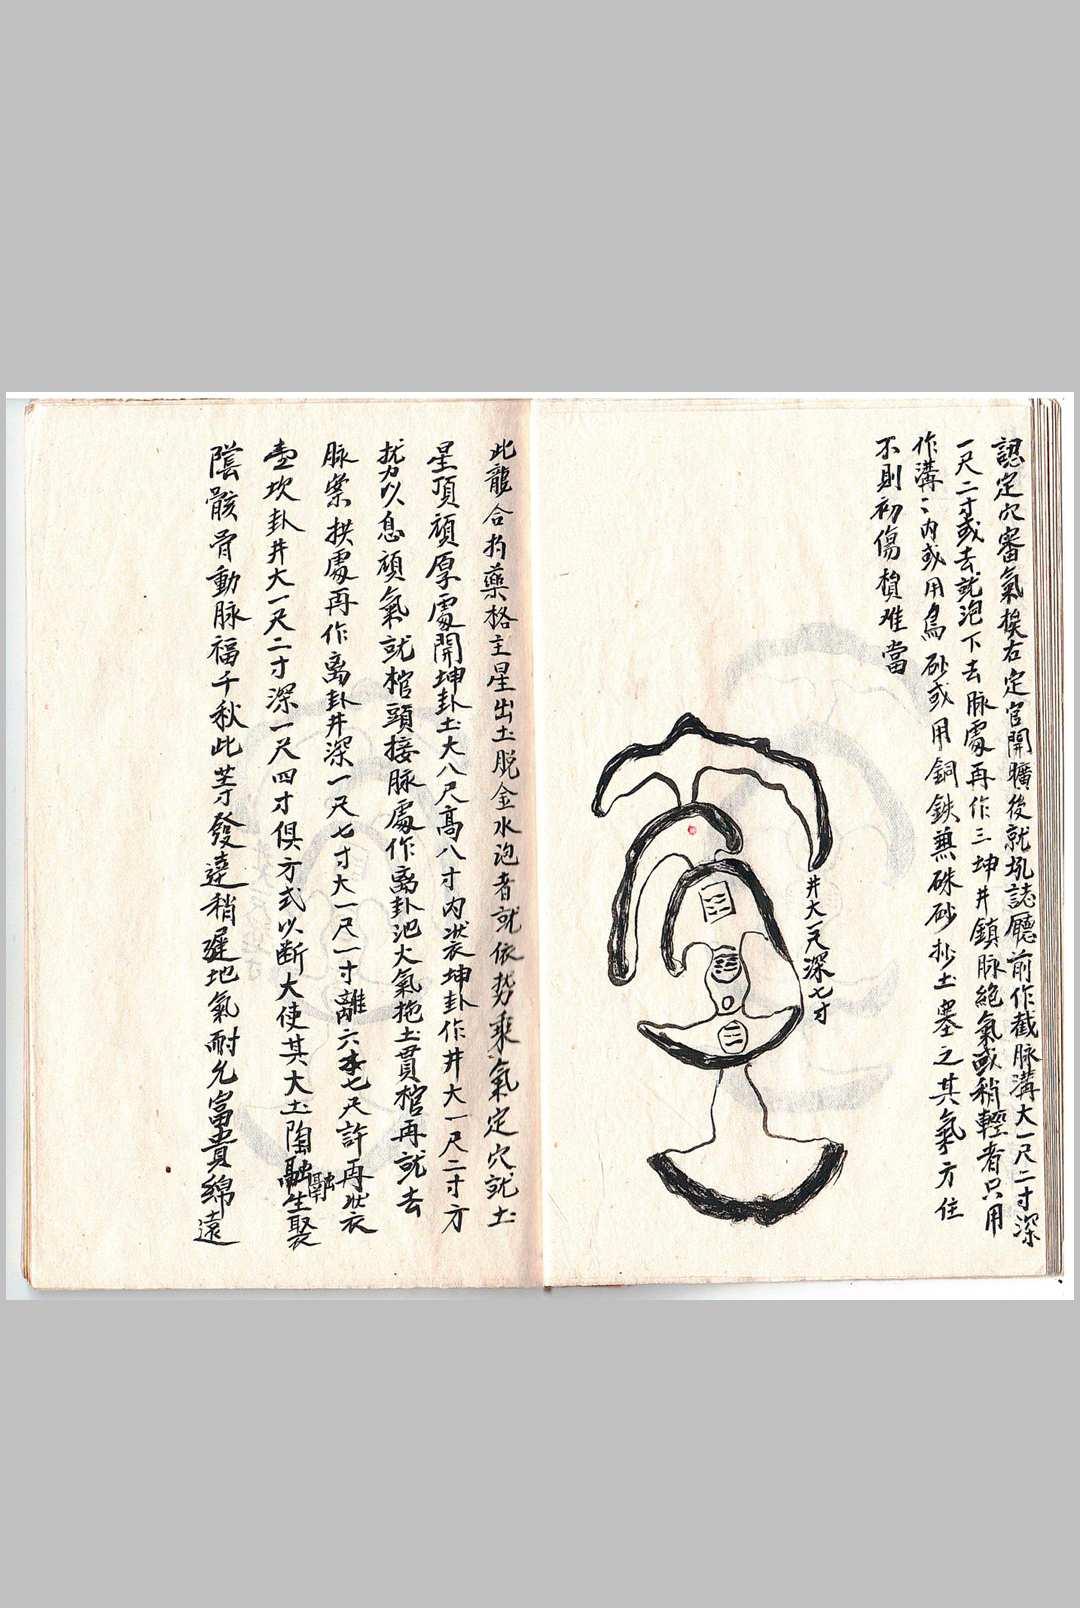 認定穴審氣挨右定官開曠後就坭誌廳前作截脉溝大一尺二寸深
一尺二寸或去就泡下去脉處再作三坤井鎮脉絕氣或稍輕者只用
作溝〻內或用烏砂或用銅鉄無硃砂抄土塞之其氣方住
不則初傷損难當
井大一尺深七寸
此龍合扚藥格主星出土脱金水泡者就依势乘氣定穴就土
星頂頑厚處開坤卦土大八尺高八寸內裝坤卦作井大一尺二寸方
扰以息頑氣就棺頭接脉處作离卦池火氣拖土貫棺再就去
脉案拱處再作离卦井深一尺七寸大一尺一寸離六七尺許再裝
壹坎卦井大一尺二寸深一尺四寸俱方式以断大使其大土陶融生聚
隂骸骨動脉福千秋此等發達稍遲地氣耐允富貴綿遠